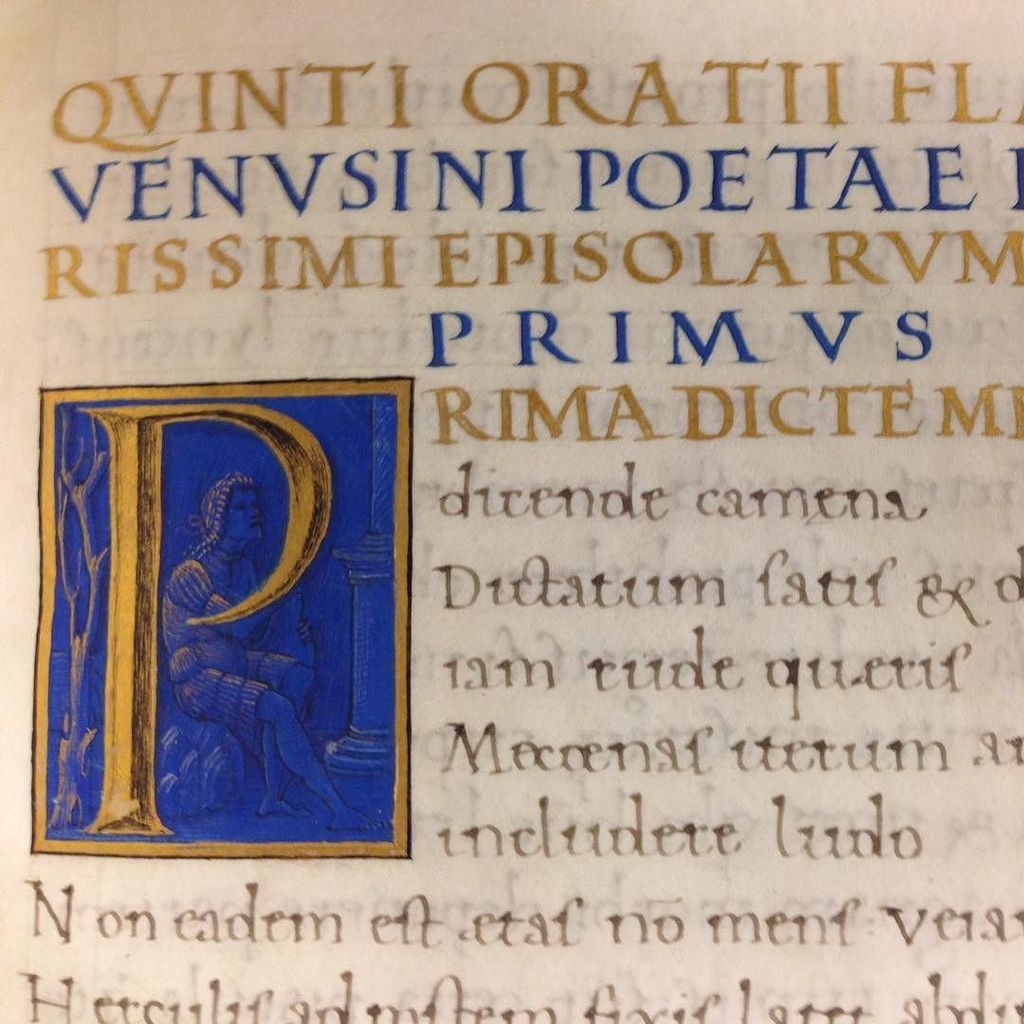 QVINTI ORATII FLA
VENVSINI POETAE
RISSIMI EPISOLARVM
PRIMVS
PRIMA DICTE MI
dicende camena
Dictatum satis & d
iam rude queris
Mecoenas iterum an
includere ludo
Non eadem est etas nō mens Veia
Herculis ad postem fixis latet abdi